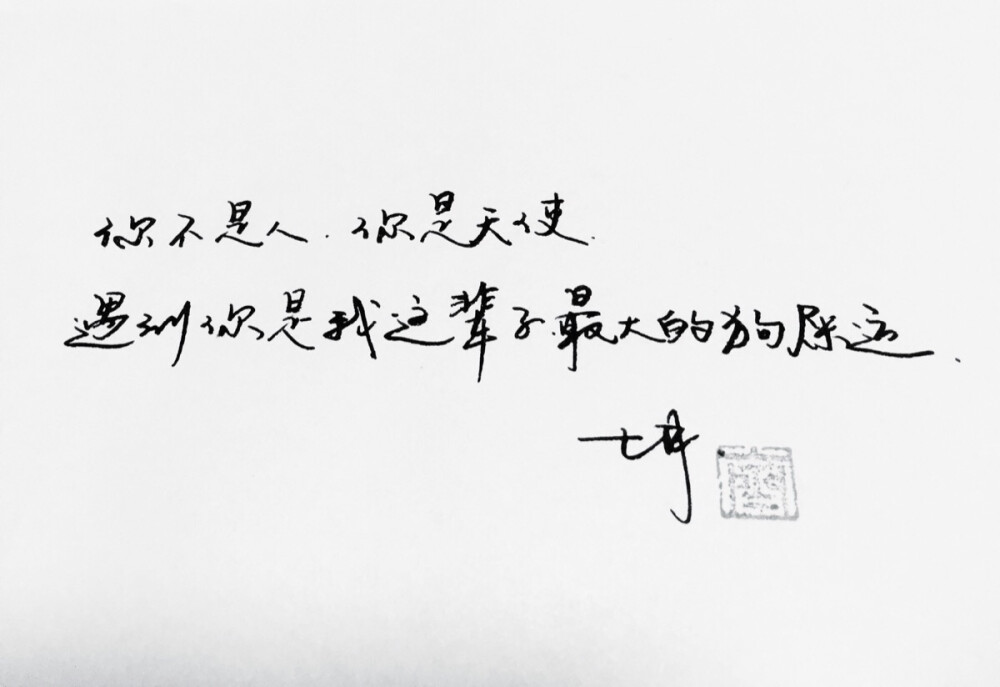 你不是人.你是天使.
遇到你是我这辈子最大的狗屎运.